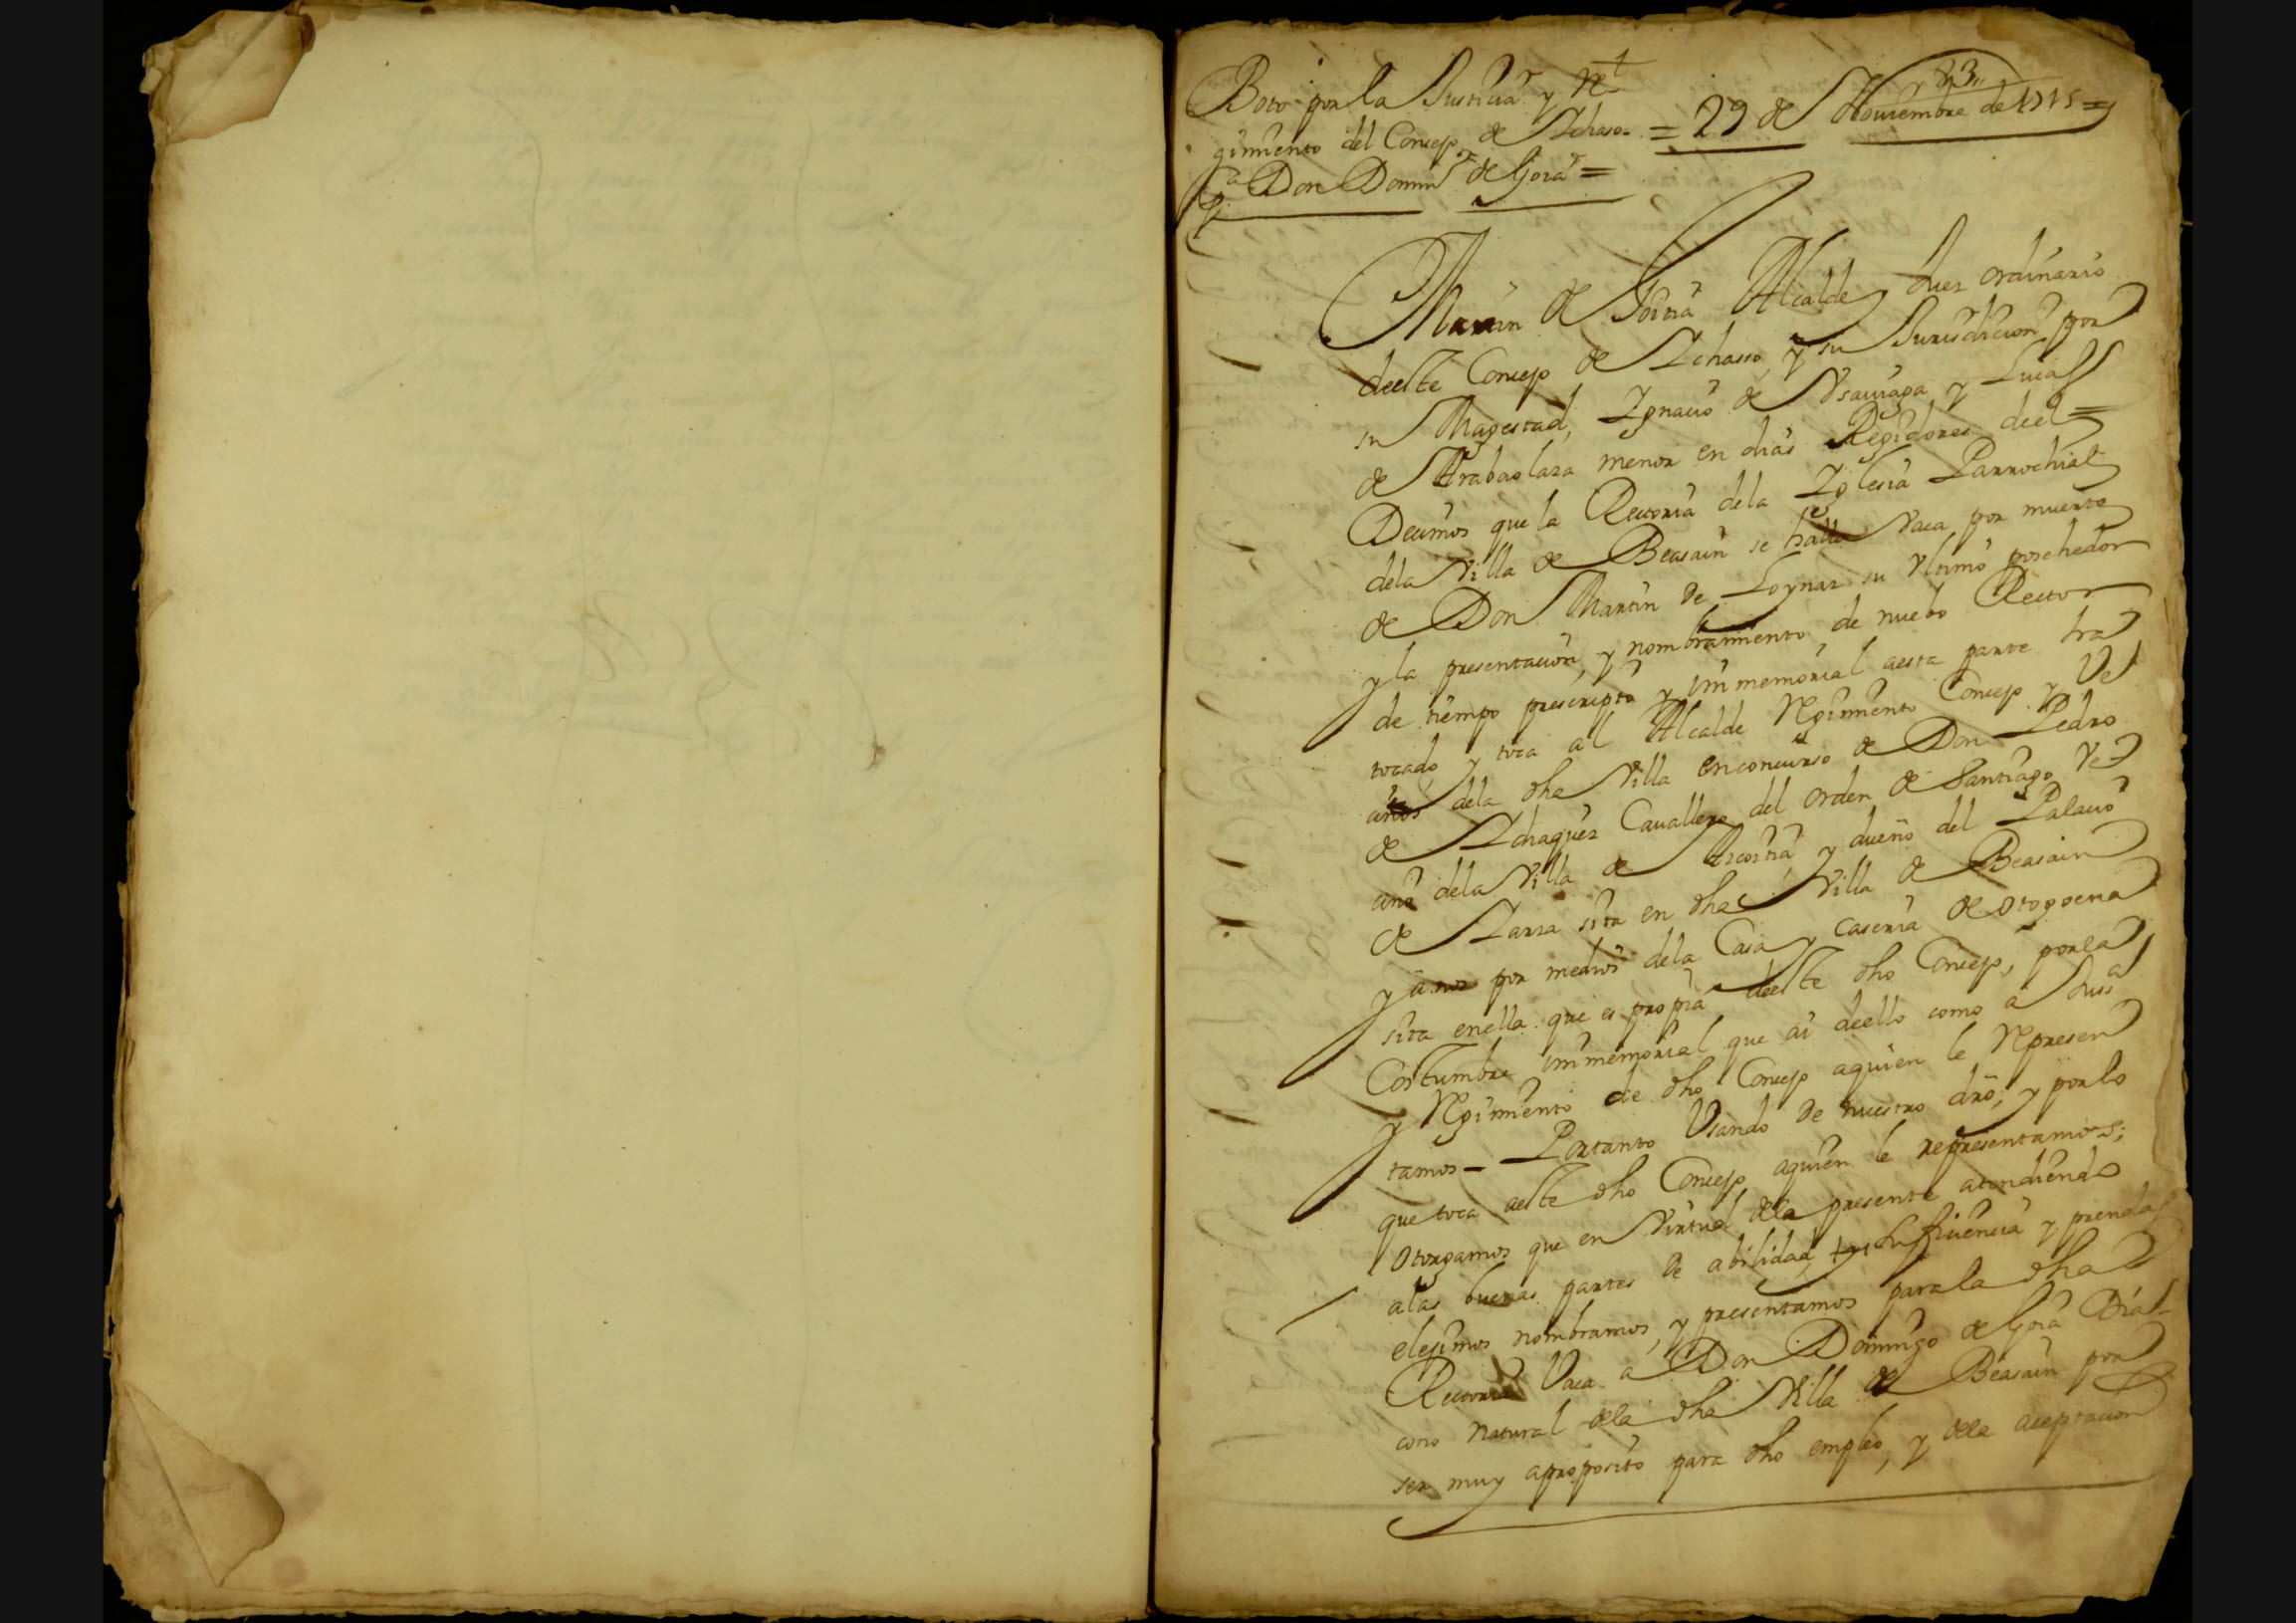 83
Boto por la Justicia y Re
gimiento del Concejo de Ychaso = 29 de Nouiembre de 1715 =
Pa Don Domingo de Goia =
Martin de Goitia Alcalde y Juez ordinario
deeste Concejo de Ychasso, y su Jurisdicion por
su Magestad, Ygnacio de Vsauiaga y Lucas
de Arabaolaza menor en dias Regidores deel =
Decimos que la Rectoria dela Yglesia Parrochial
dela Villa de Beasain se halla Vaca por muerte
de Don Martin de Loynaz su Vltimo poschedor
y la presentacion, y nombramiento de nuebo Rector
de tiempo prescripto y immemorial aesta parte ha
tocado y toca al Alcalde Regimiento Concejo y Ve
cinos dela dha Villa en concurso de Don Pedro
de Ydiaquez Cauallero del orden de Santiago Ve
cino dela Villa de Azcoitia y dueño del Palacio
de Yarza sita en dha Villa de Beasain
y a nos por medio dela Casa y caseria de otogoena
sita enella que es propia deeste dho Concejo, por la
Costumbre immemorial que ai deello como a Jussa
y Regimiento de dho Concejo aquien le Represen
tamos = Portanto Vsando de nuestro dro; y por lo
que toca aeste dho Concejo aquien le representamos;
otorgamos que en Virtud dela presente atendiendo
alas buenas partes de abilidad, suficiencia y prendas
elejimos nombramos, y presentamos para la dha
Rectoria Vaca a Don Domingo de Goia Dia
cono natural dela dha Villa de Beasain por
ser muy aproposito para dho empleo, y dela aceptacion